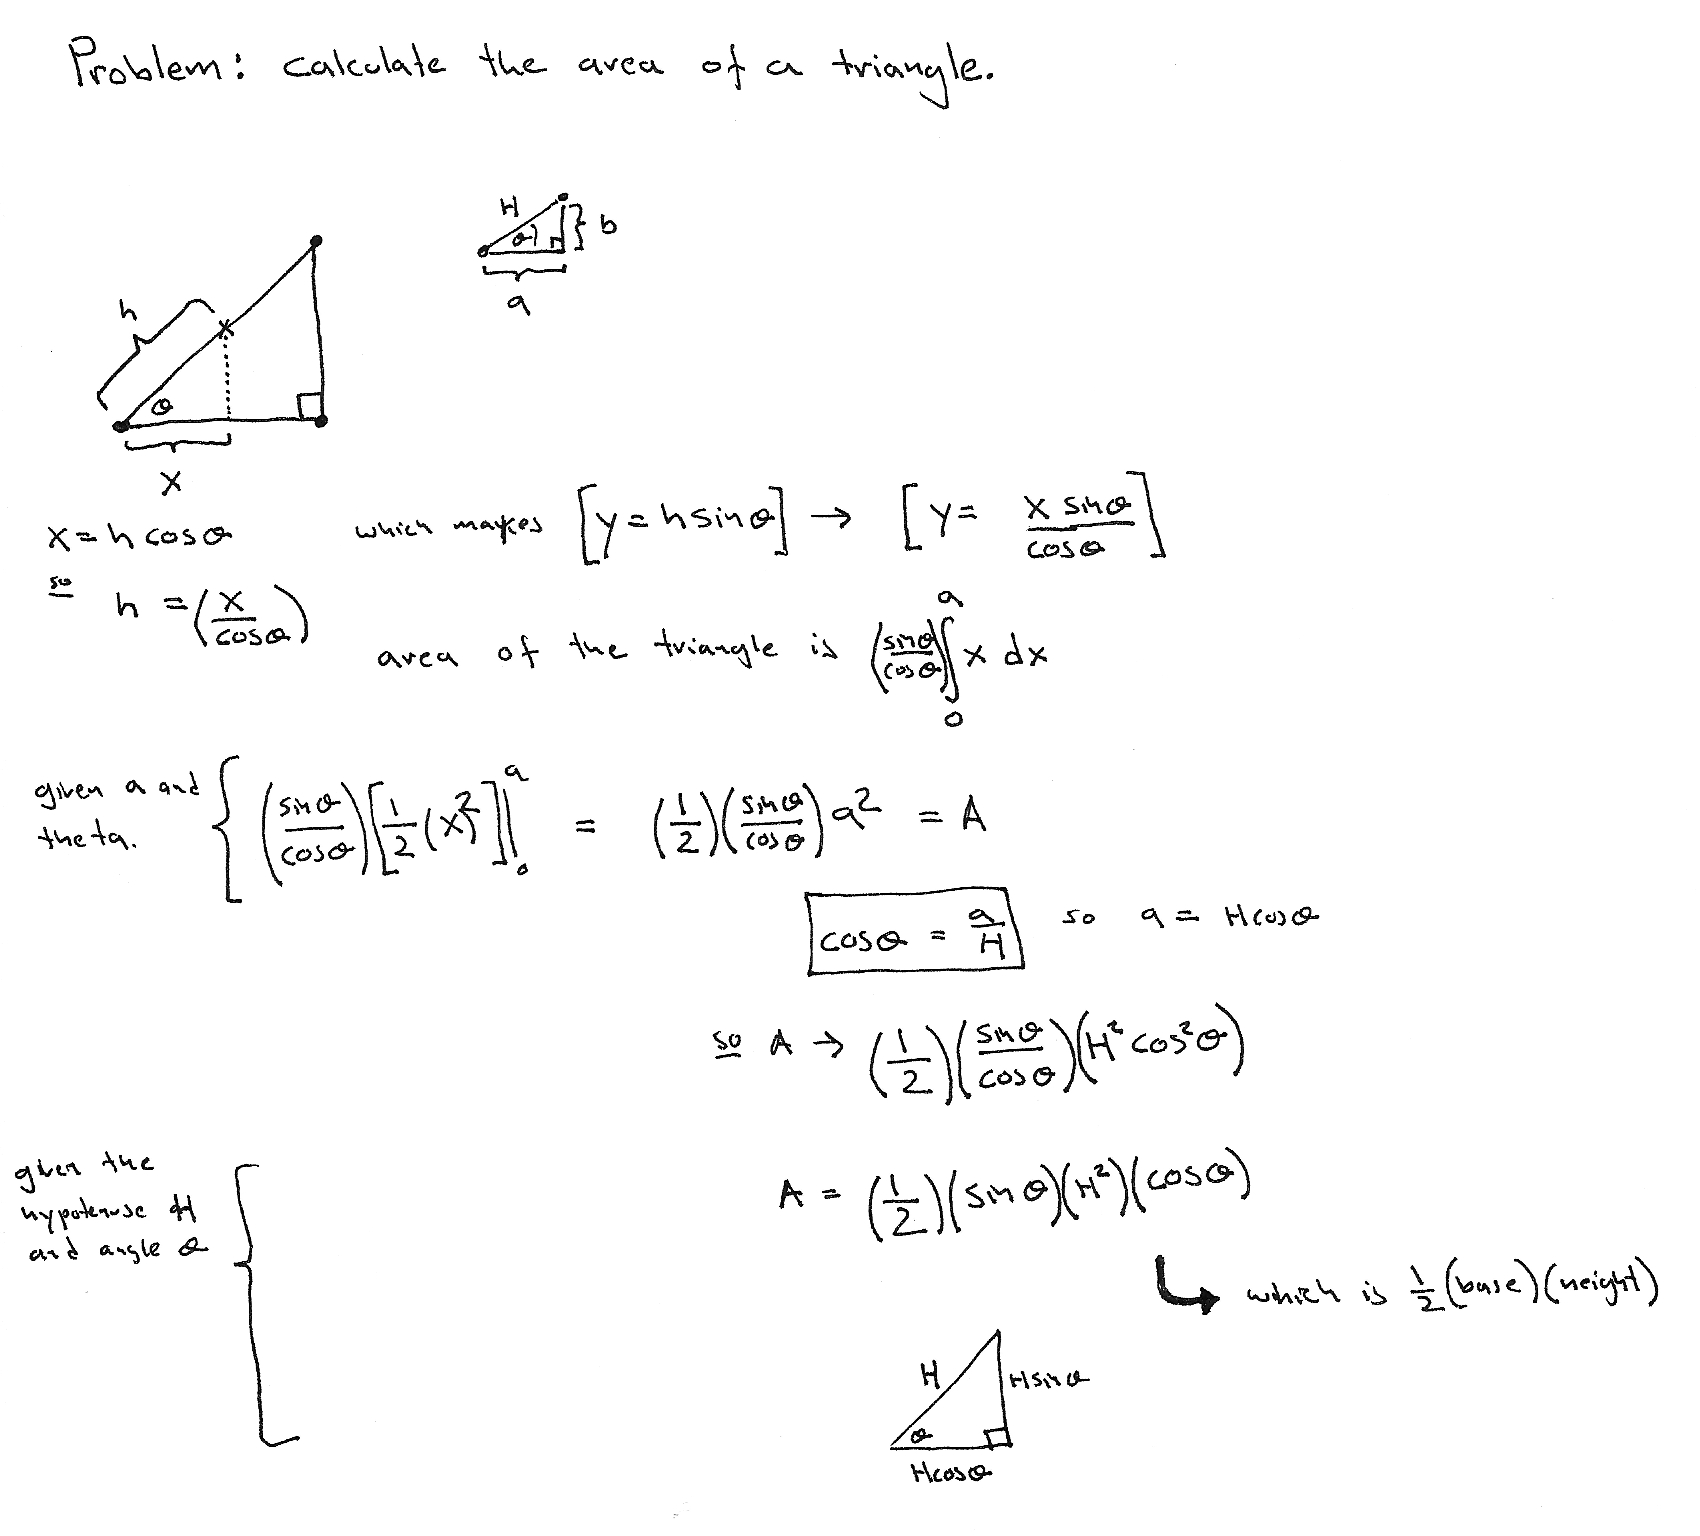 Problem: calculate the area of a triangle.
H
θ
b
a
h
θ
x
x = h cosθ
which makes [y = h sinθ] → [y = x sinθ / cosθ]
so
h = (x / cosθ)
area of the triangle is (sinθ / cosθ) ∫₀ᵃ x dx
given a and
theta.
(sinθ / cosθ) [1/2 (x)²]|₀ᵃ = (1/2)(sinθ / cosθ) a² = A
cosθ = a/H so a = H cosθ
so A → (1/2)(sinθ / cosθ)(H² cos²θ)
given the
hypotenuse H
and angle θ
A = (1/2)(sinθ)(H²)(cosθ)
which is 1/2 (base)(height)
H
H sinθ
θ
H cosθ